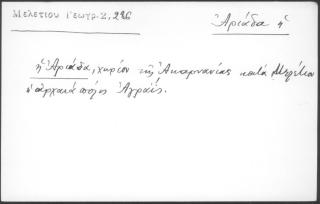 Μελετίου Γεωγρ. Ζ, 296
Ἀριάδα ἡ
ἡ Ἀριάδα, χωρίον τῆς Ἀκαρνανίας κατά Μελέτιον
ἡ ἀρχαιά πόλις Ἀγραΐς.